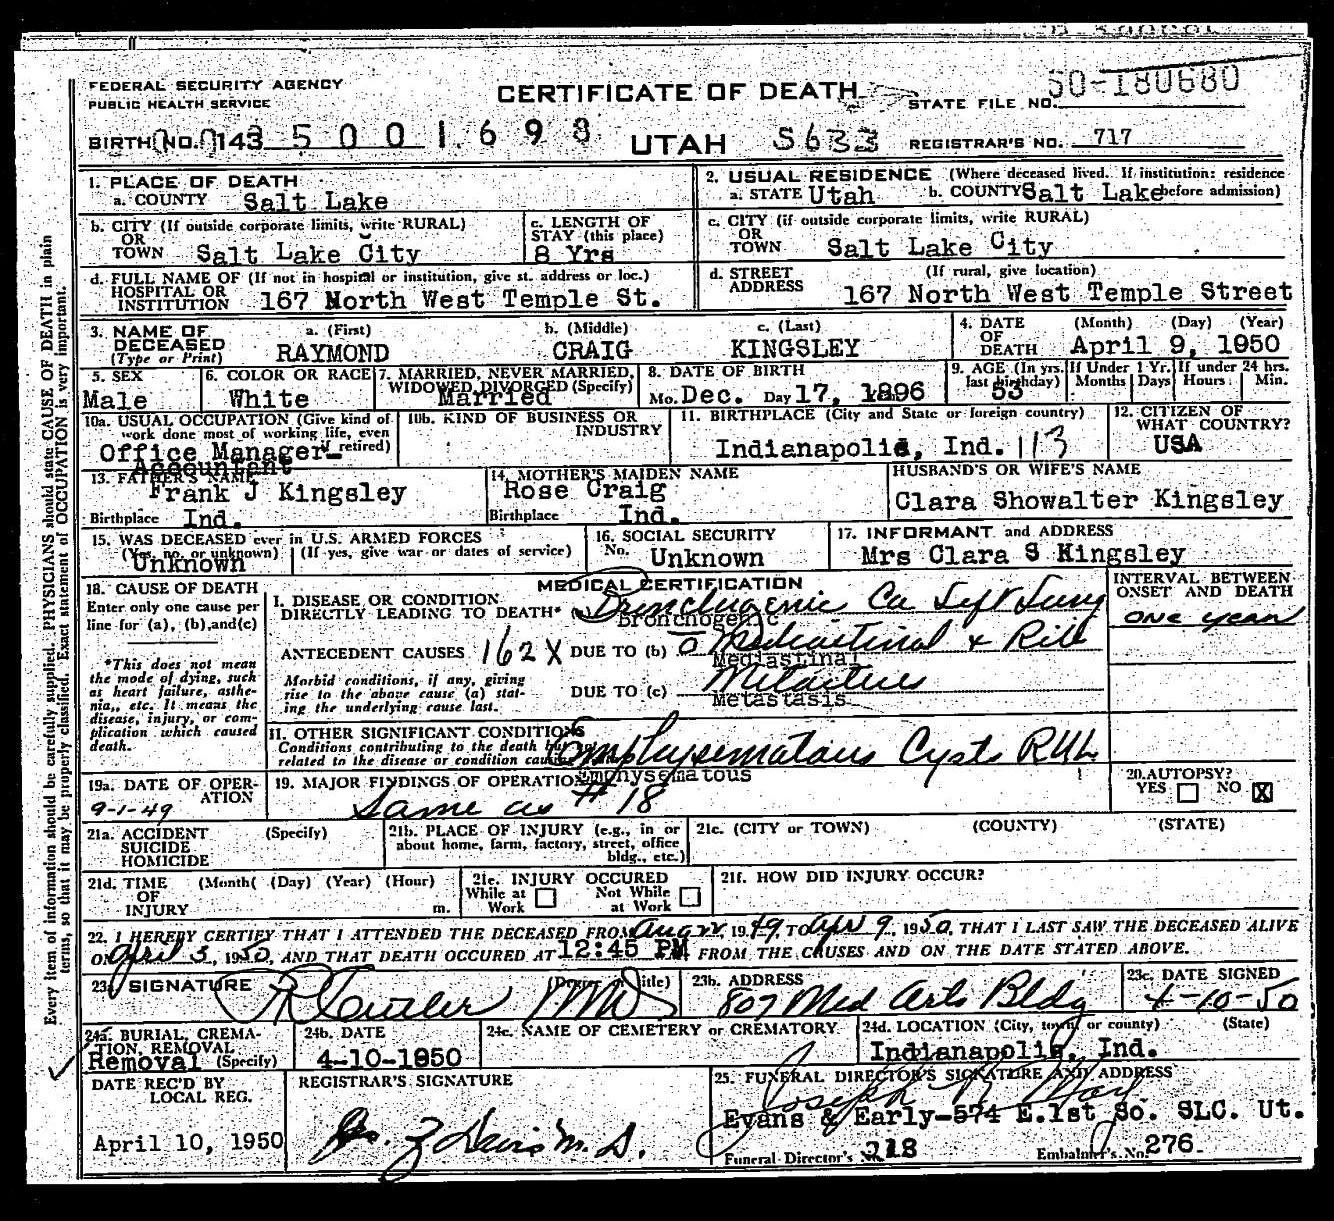 FEDERAL SECURITY AGENCY
PUBLIC HEALTH SERVICE
CERTIFICATE OF DEATH
STATE FILE NO. 50-180680
BIRTH NO. 143 5001698
UTAH S633
REGISTRAR'S NO. 717
1. PLACE OF DEATH
a. COUNTY Salt Lake
2. USUAL RESIDENCE (Where deceased lived. If institution: residence before admission)
a. STATE Utah b. COUNTY Salt Lake
b. CITY (If outside corporate limits, write RURAL)
OR
TOWN Salt Lake City
c. LENGTH OF
STAY (this place)
8 Yrs
c. CITY (if outside corporate limits, write RURAL)
OR
TOWN Salt Lake City
d. FULL NAME OF (If not in hospital or institution, give st. address or loc.)
HOSPITAL OR
INSTITUTION 167 North West Temple St.
d. STREET (If rural, give location)
ADDRESS 167 North West Temple Street
3. NAME OF
DECEASED
(Type or Print)
a. (First) b. (Middle) c. (Last)
RAYMOND CRAIG KINGSLEY
4. DATE (Month) (Day) (Year)
OF
DEATH April 9, 1950
5. SEX
Male
6. COLOR OR RACE
White
7. MARRIED, NEVER MARRIED,
WIDOWED, DIVORCED (Specify)
Married
8. DATE OF BIRTH
Mo. Dec. Day 17, 1896
9. AGE (In yrs.
last birthday)
53
If Under 1 Yr.
Months Days
If under 24 hrs.
Hours Min.
10a. USUAL OCCUPATION (Give kind of
work done most of working life, even
if retired)
Office Manager-
Accountant
10b. KIND OF BUSINESS OR
INDUSTRY
11. BIRTHPLACE (City and State or foreign country)
Indianapolis, Ind. 113
12. CITIZEN OF
WHAT COUNTRY?
USA
13. FATHER'S NAME
Frank J Kingsley
Birthplace Ind.
14. MOTHER'S MAIDEN NAME
Rose Craig
Birthplace Ind.
HUSBAND'S OR WIFE'S NAME
Clara Showalter Kingsley
15. WAS DECEASED ever in U.S. ARMED FORCES
(Yes, no, or unknown) (If yes, give war or dates of service)
Unknown
16. SOCIAL SECURITY
No. Unknown
17. INFORMANT and ADDRESS
Mrs Clara S Kingsley
18. CAUSE OF DEATH
Enter only one cause per
line for (a), (b), and (c)
*This does not mean
the mode of dying, such
as heart failure, asthe-
nia, etc. It means the
disease, injury, or com-
plication which caused
death.
MEDICAL CERTIFICATION
I. DISEASE OR CONDITION
DIRECTLY LEADING TO DEATH* (a) Bronchogenic Ca Left Lung
Bronchogenic
ANTECEDENT CAUSES 162X DUE TO (b) Mediastinal & Rib
Mediastinal
Morbid conditions, if any, giving
rise to the above cause (a) stat-
ing the underlying cause last.
DUE TO (c) Metastasis
Metastasis
II. OTHER SIGNIFICANT CONDITIONS
Conditions contributing to the death but
related to the disease or condition
Emphysematous Cysts RUL
Emphysematous
INTERVAL BETWEEN
ONSET AND DEATH
one year
19a. DATE OF OPER-
ATION
9-1-49
19. MAJOR FINDINGS OF OPERATION
Same as #18
20. AUTOPSY?
YES NO X
21a. ACCIDENT (Specify)
SUICIDE
HOMICIDE
21b. PLACE OF INJURY (e.g., in or
about home, farm, factory, street, office
bldg., etc.)
21c. (CITY or TOWN) (COUNTY) (STATE)
21d. TIME (Month( (Day) (Year) (Hour)
OF
INJURY m.
21e. INJURY OCCURED
While at Work Not While at Work
21f. HOW DID INJURY OCCUR?
22. I HEREBY CERTIFY THAT I ATTENDED THE DECEASED FROM Aug 1949, TO Apr 9, 1950, THAT I LAST SAW THE DECEASED ALIVE
ON April 3, 1950, AND THAT DEATH OCCURED AT 12:45 PM FROM THE CAUSES AND ON THE DATE STATED ABOVE.
23a. SIGNATURE (Degree or title)
Cutler MD
23b. ADDRESS
807 Med Arts Bldg
23c. DATE SIGNED
4-10-50
24a. BURIAL, CREMA-
TION, REMOVAL
Removal (Specify)
24b. DATE
4-10-1950
24c. NAME OF CEMETERY or CREMATORY
24d. LOCATION (City, town, or county) (State)
Indianapolis, Ind.
DATE REC'D BY
LOCAL REG.
April 10, 1950
REGISTRAR'S SIGNATURE
M.D.
25. FUNERAL DIRECTOR'S SIGNATURE AND ADDRESS
Joseph
Evans & Early-574 E.1st So. SLC. Ut.
Funeral Director's No. 218
Embalmer's No. 276
Every item of information should be carefully supplied. PHYSICIANS should state CAUSE OF DEATH in plain
terms, so that it may be properly classified. Exact statement of OCCUPATION is very important.